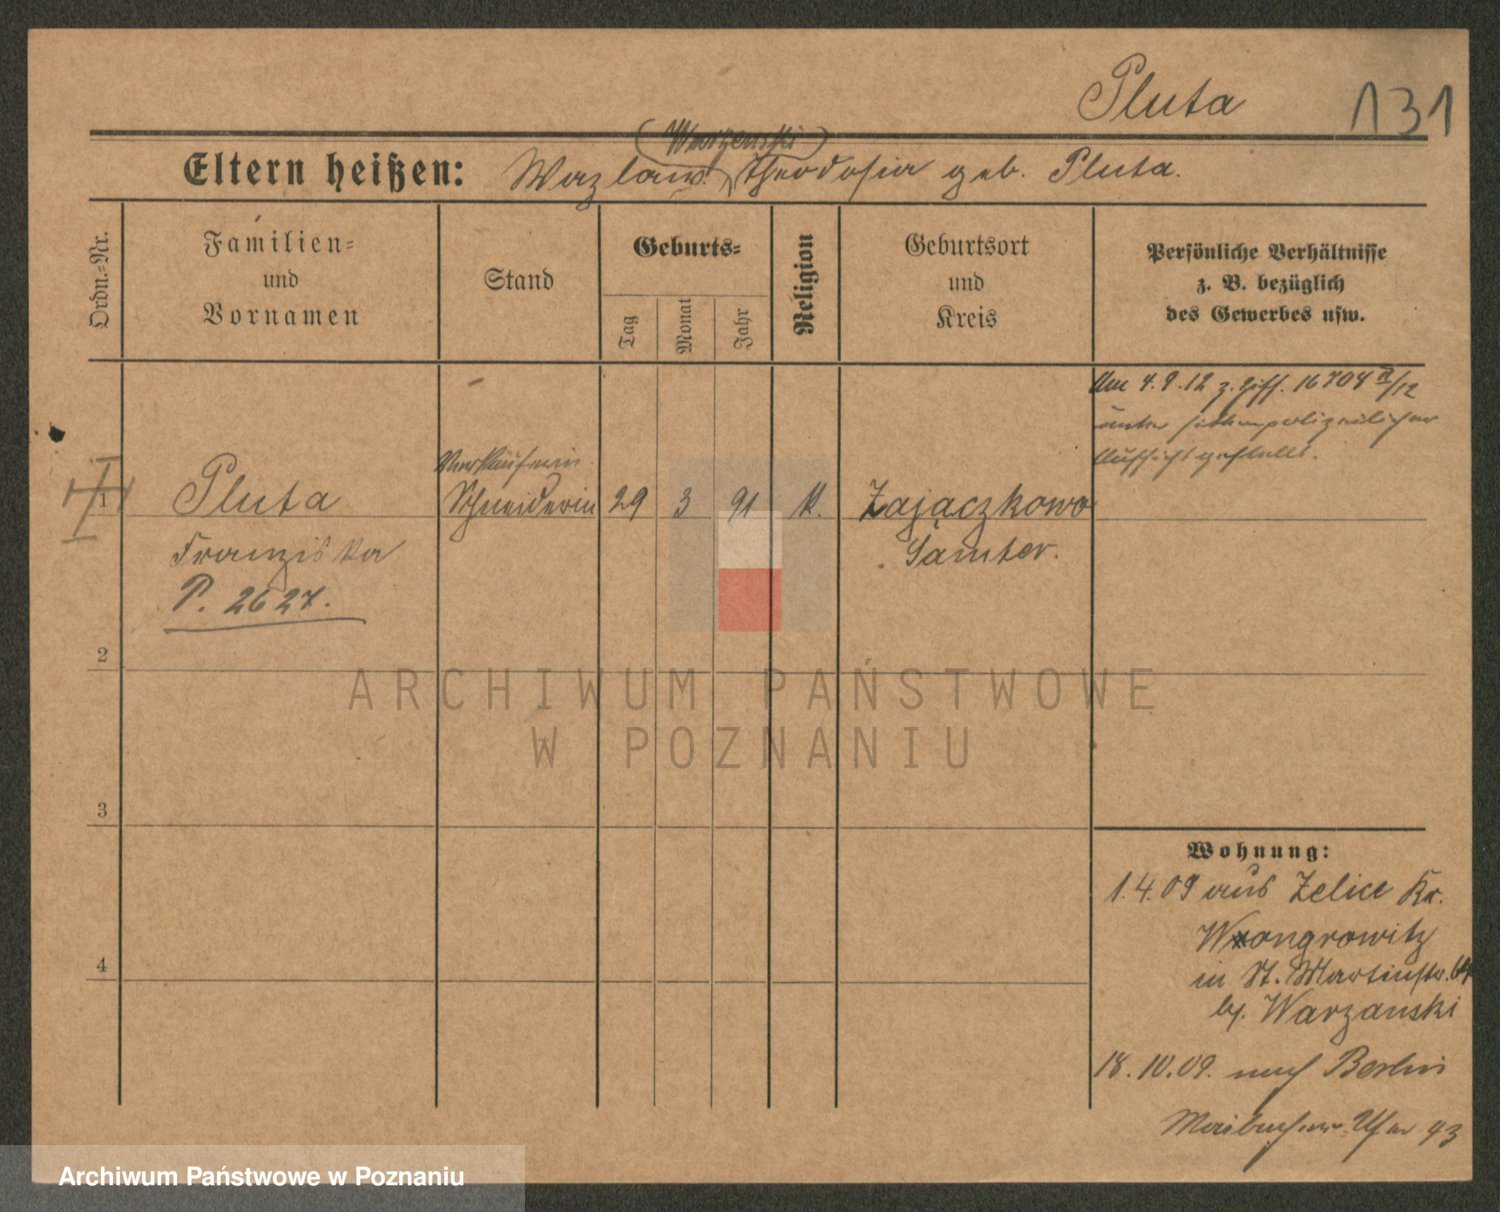 Pluta 131
(Warzenski)
Eltern heißen: Wazlaw. Theodosia geb. Pluta.
Ordn.=Nr.
Familien=
und
Vornamen
Stand
Geburts=
Tag
Monat
Jahr
Religion
Geburtsort
und
Kreis
Persönliche Verhältnisse
z. B. bezüglich
des Gewerbes usw.
Am 4.9.12 z. Ziff. 16704 /12
unter sittenpolizeilicher
Aufsicht gestellt.
Verkäuferin
1 Pluta Schneiderin 29 3 91 K. Zajączkowo
Franziska Samter.
P. 2627.
2
3
4
Wohnung:
1.4.09 aus Zelice Kr.
Wongrowitz
in St. Martinstr. 64
by. Warzanski
18.10.09. nach Berlin
Maibacher-Ufer 43
ARCHIWUM PAŃSTWOWE
W POZNANIU
Archiwum Państwowe w Poznaniu